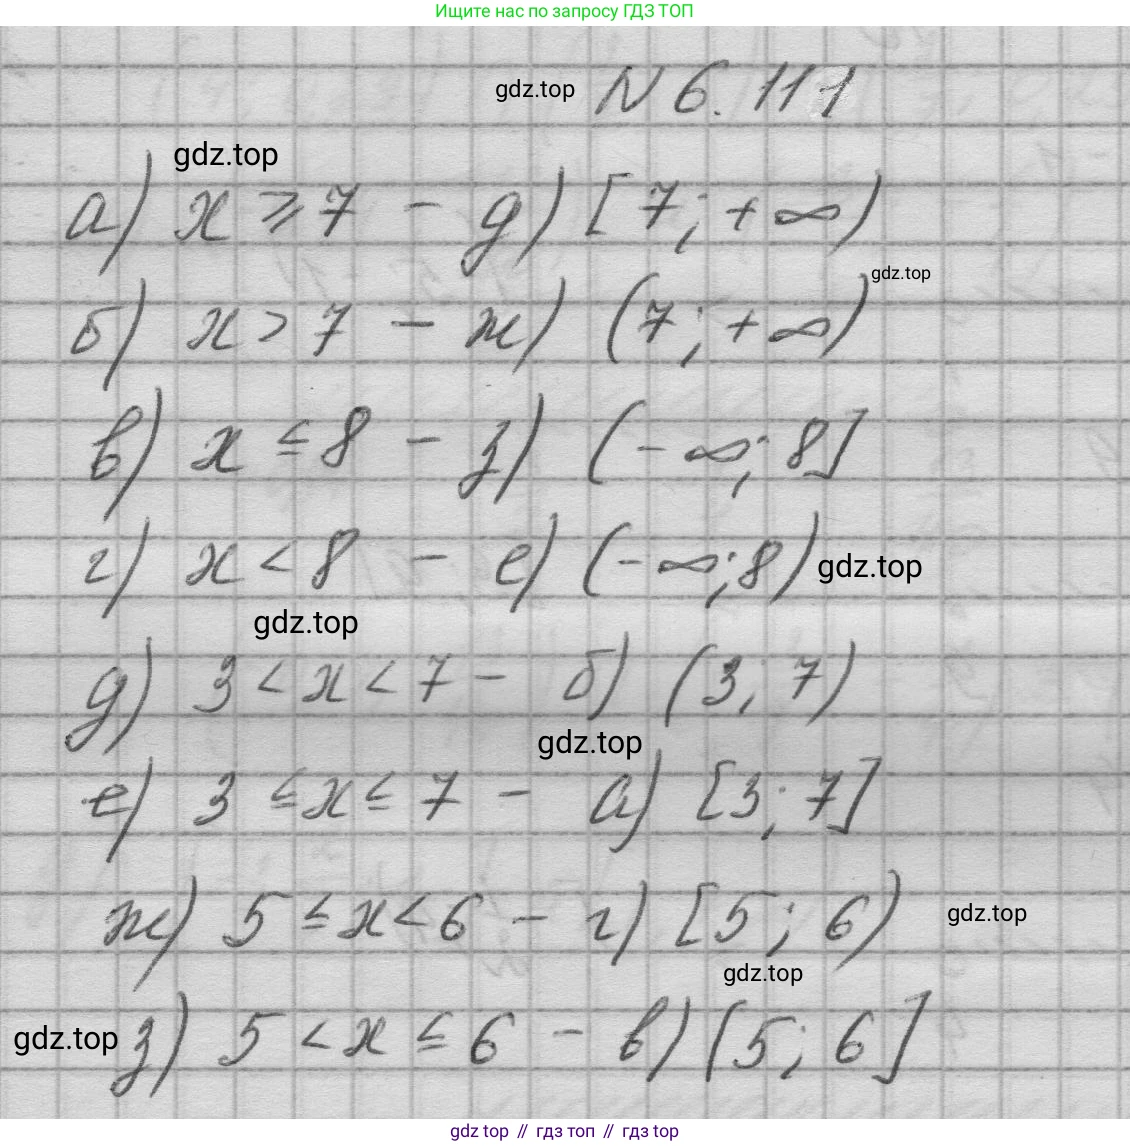 Ищите нас по запросу ГДЗ ТОП
gdz.top N 6.111
gdz.top
а) x ⩾ 7 - д) [7; +∞)
gdz.top
б) x > 7 - ж) (7; +∞)
в) x ≤ 8 - з) (-∞; 8]
г) x < 8 - е) (-∞; 8) gdz.top
gdz.top
д) 3 < x < 7 - б) (3; 7)
gdz.top
е) 3 ≤ x ≤ 7 - а) [3; 7]
ж) 5 ≤ x < 6 - г) [5; 6) gdz.top
gdz.top
gdz.top з) 5 < x ≤ 6 - в) (5; 6]
gdz top // гдз топ // гдз top